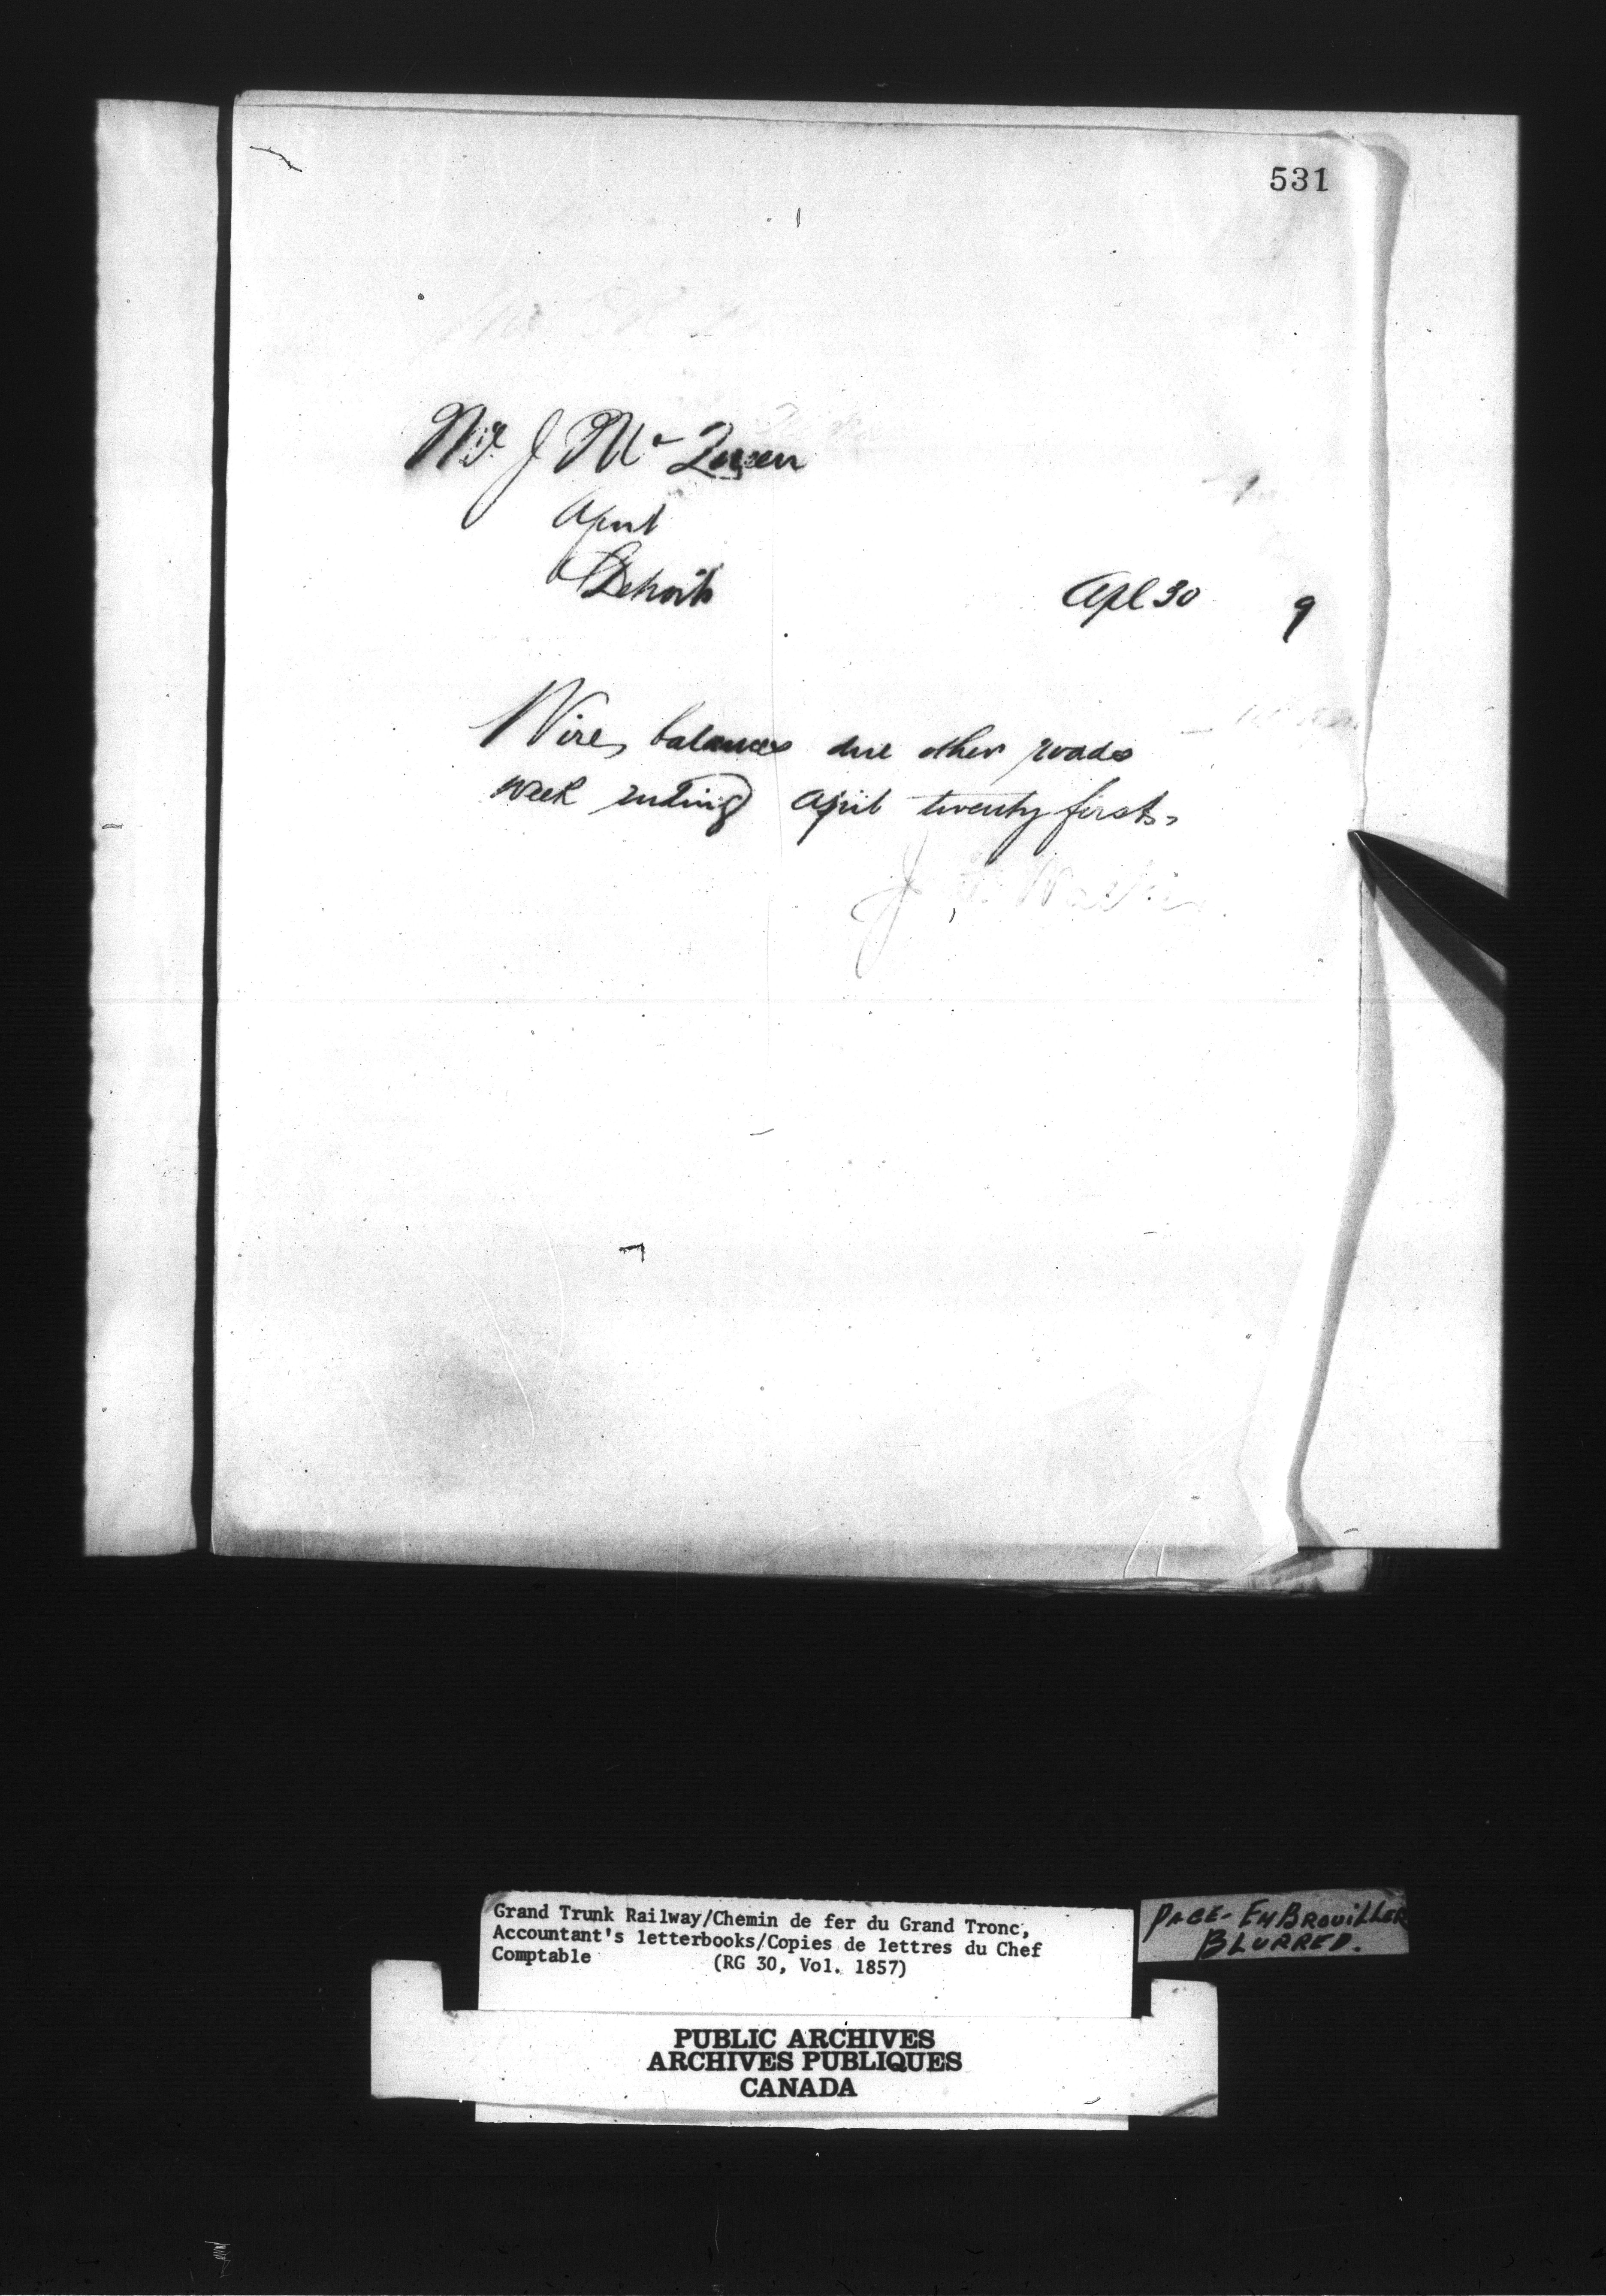 531
Mr J Mc Queen
Agent
Detroit
Apl 30 9
Wire balances due other roads
week ending April twenty first.
J
Grand Trunk Railway/Chemin de fer du Grand Tronc,
Accountant's letterbooks/Copies de lettres du Chef
Comptable (RG 30, Vol. 1857)
PAGE - EMBROUILLER
BLURRED.
PUBLIC ARCHIVES
ARCHIVES PUBLIQUES
CANADA